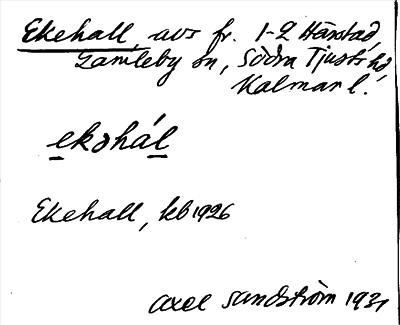 Ekehall, avs fr. 1-2 Härstad,
Gamleby sn, Södra Tjusts hd,
Kalmar l.
ekəhál
Ekehall, kb 1926
Axel Sandström 1931